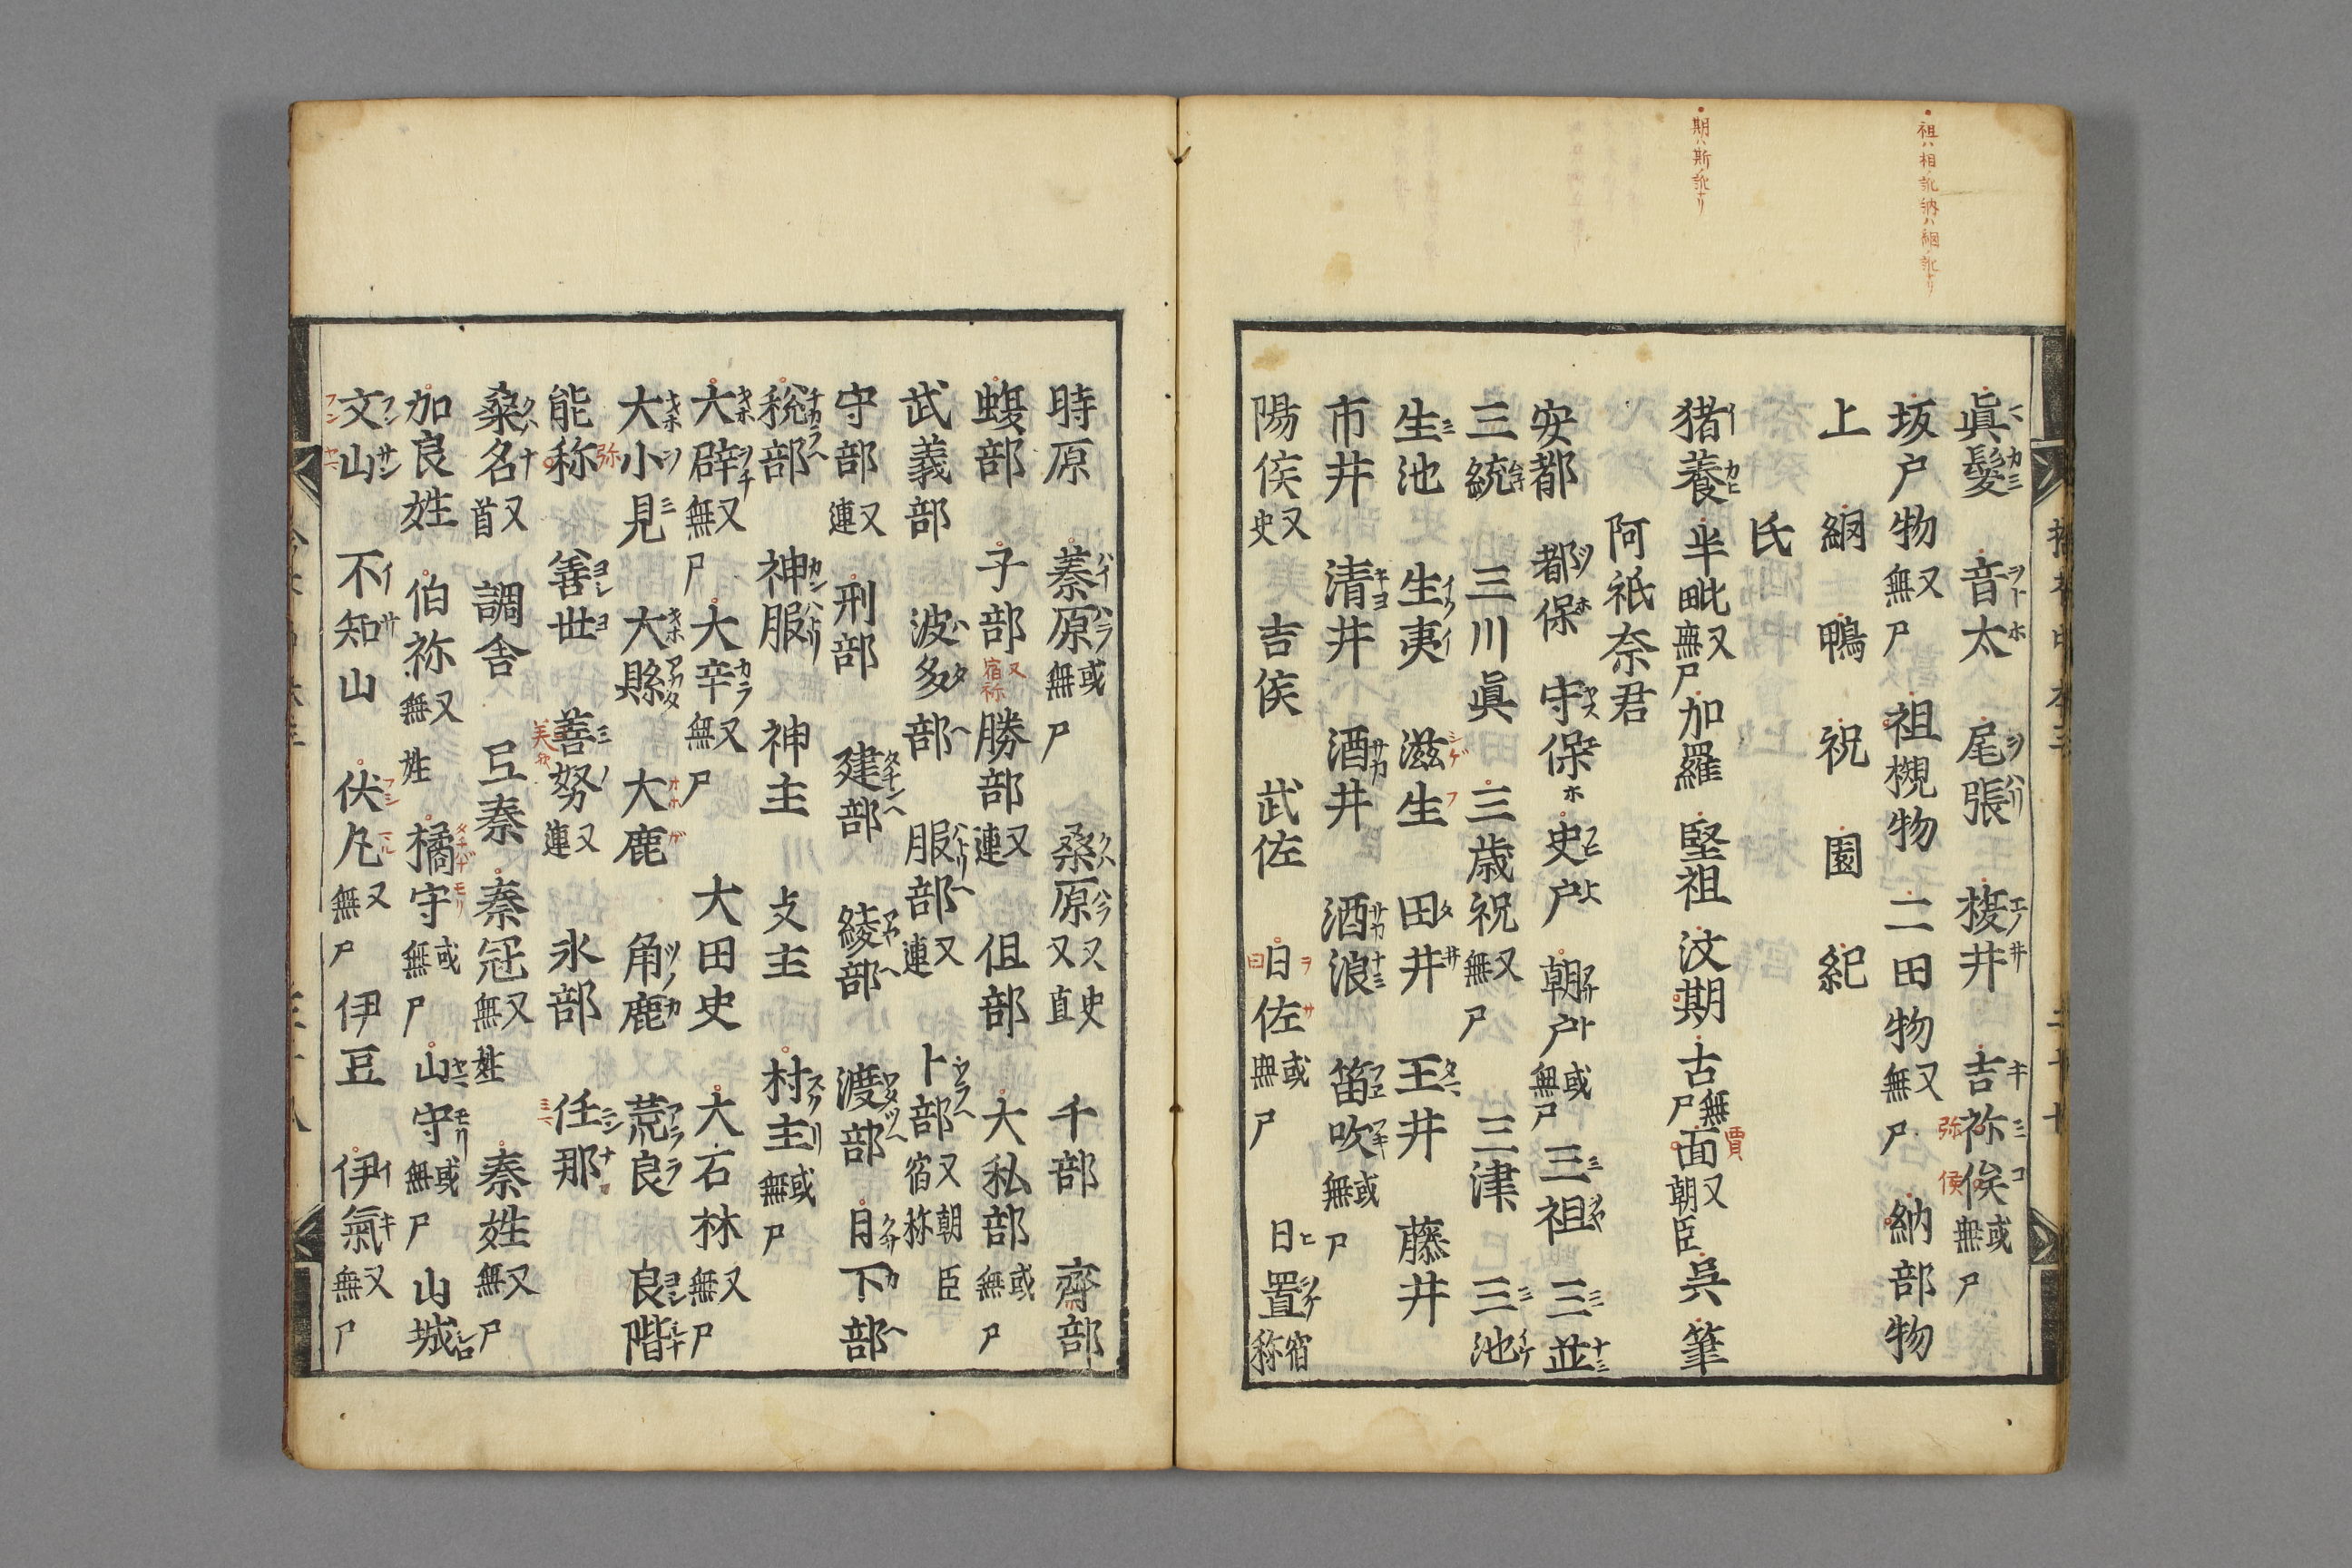 祖ハ相ノ訛納ハ絪ノ訛ナリ
期ハ斯ノ訛ナリ
眞髮 音太 尾張 榎井 吉祢侯或無尸
坂戸物又無尸 祖槻物 二田物又無尸 納部物
上 網 鴨 祝 園 紀
氏
猪養 半毗又無尸 加羅 堅祖 汶期 古無尸 面又朝臣 呉 筆
阿祇奈君
安都 都保 守保 史戸 朝戸或無尸 三祖 三並
三統 三川眞 三歳祝又無尸 三津 三池
生池 生夷 滋生 田井 王井 藤井
市井 清井 酒井 酒浪 笛吹或無尸
陽侯又史 吉侯 武佐 日佐或無尸 日置宿祢
時原 蓁原或無尸 桑原又史又直 千部 齋部
蝮部 子部又宿祢 勝部又連 但部 大私部或無尸
武義部 波多部 服部又連 卜部又宿祢朝臣
守部又連 刑部 建部 綾部 渡部 日下部
税部 神服 神主 攴主 村主或無尸
大辟又無尸 大辛又無尸 大田史 大石林又無尸
大小見 大縣 大鹿 角鹿 荒良 良階
能祢 善世 善努又連 氷部 任那
桒名又首 調舎 巨秦 秦冠又無姓 秦姓又無尸
加良姓 伯祢又無姓 橘守或無尸 山守或無尸 山城
文山 不知山 伏凡又無尸 伊豆 伊氣又無尸